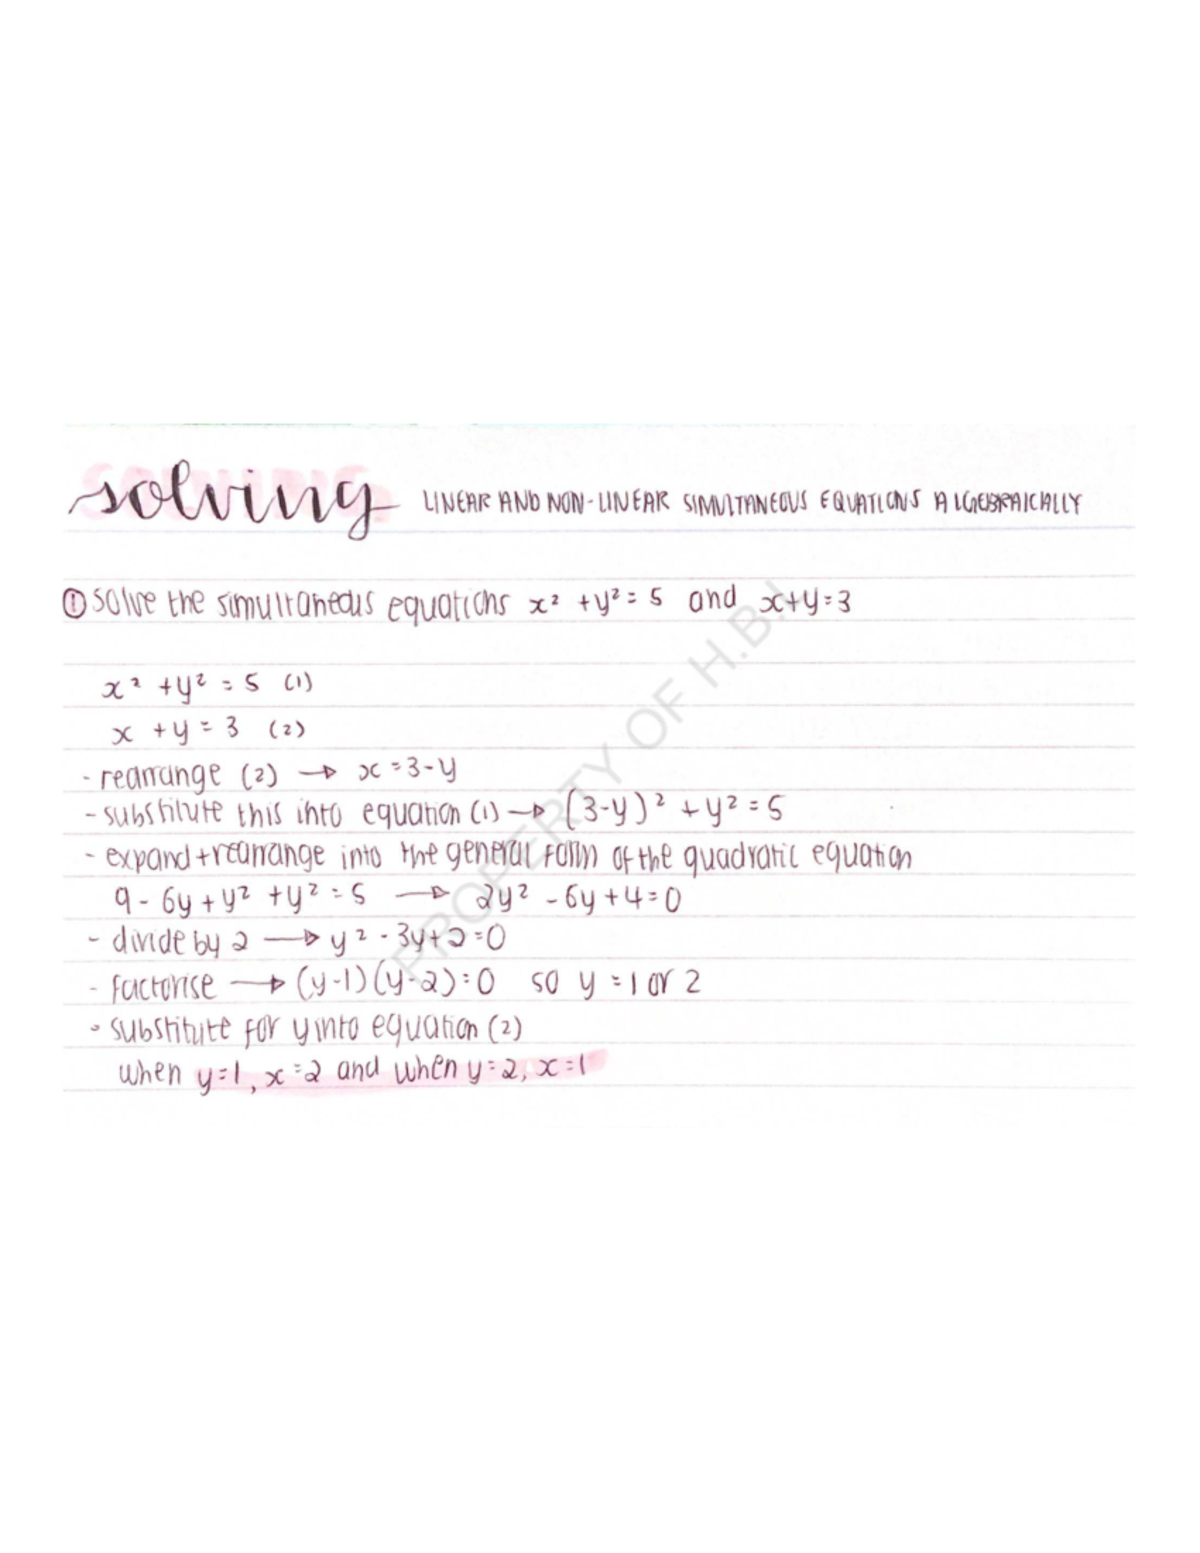 solving LINEAR AND NON-LINEAR SIMULTANEOUS EQUATIONS ALGEBRAICALLY
① solve the simultaneous equations x² + y² = 5 and x+y=3
x² + y² = 5 (1)
x + y = 3 (2)
- rearrange (2) → x = 3-y
- substitute this into equation (1) → (3-y)² + y² = 5
- expand + rearrange into the general form of the quadratic equation
9 - 6y + y² + y² = 5 → 2y² - 6y + 4 = 0
- divide by 2 → y² - 3y + 2 = 0
- factorise → (y-1)(y-2) = 0 so y = 1 or 2
- substitute for y into equation (2)
when y=1, x=2 and when y=2, x=1
PROPERTY OF H.B.I.